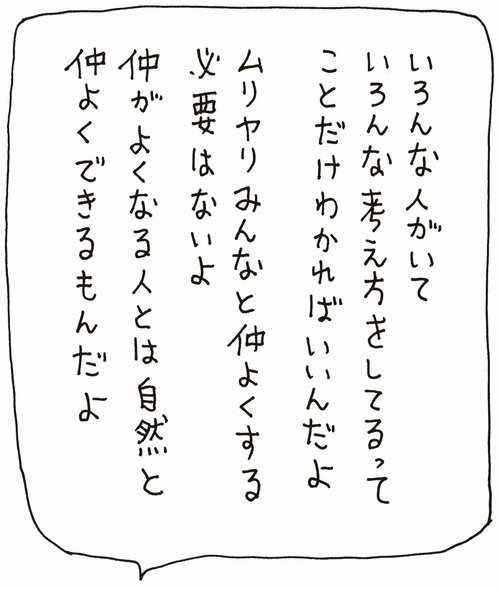 いろんな人がいて
いろんな考え方をしてるって
ことだけわかればいいんだよ
ムリヤリみんなと仲よくする
必要はないよ
仲がよくなる人とは自然と
仲よくできるもんだよ